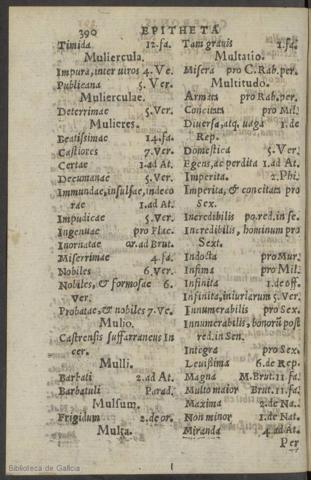 390 EPITHETA
Timida 12.fa.
Muliercula.
Impura, inter uiros 4. Ve.
Publicana 5. Ver.
Mulierculae.
Deterrimae 5. Ver.
Mulieres.
Beatissimae 14. fa.
Castiores 7. Ver.
Certae 1. ad At.
Decumanae 5. Ver.
Immundae, insulsae, indeco
rae 1. ad At.
Impudicae 5. Ver.
Ingenuae pro Flac.
Inornatae or. ad Brut.
Miserrimae 4. fa.
Nobiles 6. Ver.
Nobiles, & formosae 6.
Ver.
Probatae, & nobiles 7. Ve.
Mulio.
Castrensis suffarraneus In
cer.
Mulli.
Barbati 2. ad At.
Barbatuli Parad.
Mulsum.
Frigidum 2. de or.
Multa.
Tam grauis 1. fa.
Multatio.
Misera pro C. Rab. per.
Multitudo.
Armata pro Rab. per.
Concitata pro Mil.
Diuersa, atq. uaga 1. de
Rep.
Domestica 5. Ver.
Egens, ac perdita 1. ad At.
Imperita. 2. Phi.
Imperita, & concitata pro
Sex.
Incredibilis po. red. in se.
Incredibilis, hominum pro
Sext.
Indocta pro Mur.
Infima pro Mil.
Infinita 1. de off.
Infinita, iniuriarum 5. Ver.
Innumerabilis pro Sex.
Innumerabilis, bonorũ post
red. in Sen.
Integra pro Sex.
Leuissima 6. de Rep.
Magna M. Brut. 11. fa.
Multo maior Brut. 11. fa.
Maxima 2. de Na.
Non minor 1. de Nat.
Miranda 4. ad At.
Per
Biblioteca de Galicia